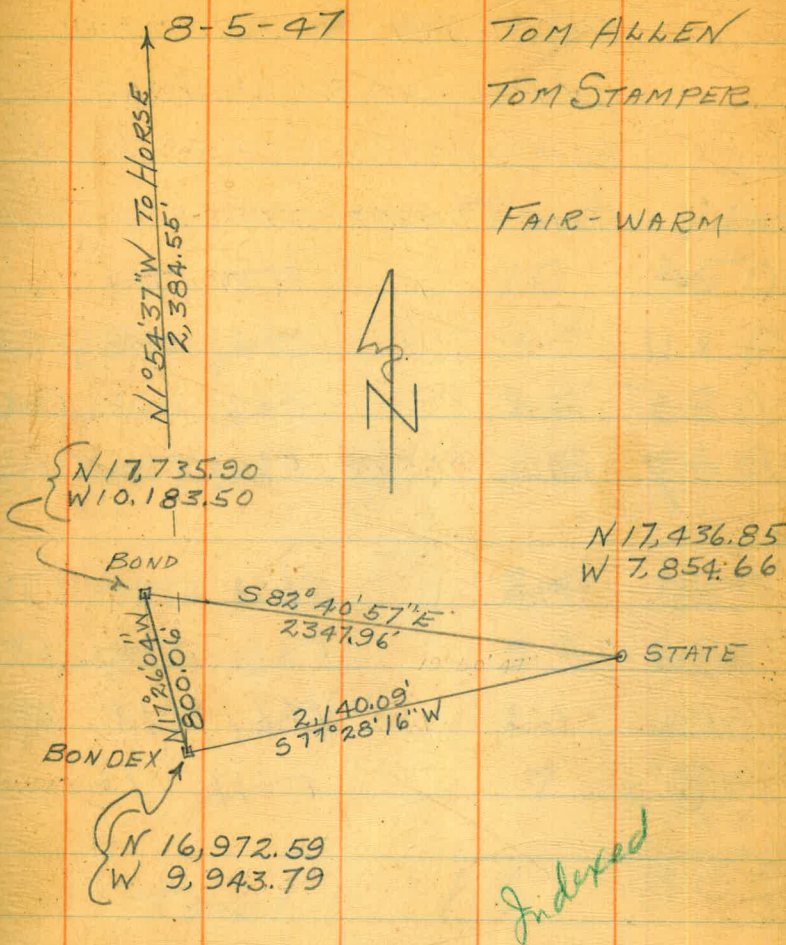 8-5-47
TOM ALLEN
TOM STAMPER
FAIR-WARM
N1°54'37"W TO HORSE
2,384.55'
N
N 17,735.90
W 10,183.50
N 17,436.85
W 7,854.66
BOND
S 82°40'57"E
2347.96'
STATE
N17°26'04"W
800.06'
2,140.09'
S 77°28'16"W
BONDEX
N 16,972.59
W 9,943.79
Indexed